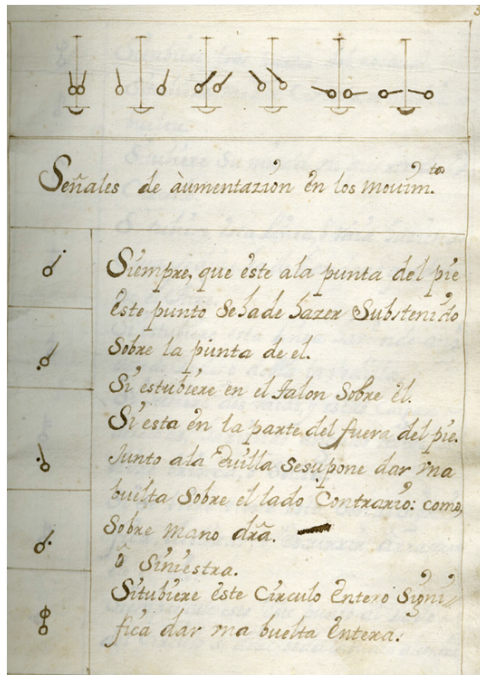 Señales de àumentazion en los movim.to
Siempre, que este ala punta del pie
este punto Se ha de hazer Substenido
Sobre la punta de el.
Si estubiere en el talon Sobre el.
Si esta en la parte del fuera del pie.
Junto ala evilla se supone dar vna
buelta Sobre el lado Contrario: como,
Sobre mano dra.
ò Siniestra.
Si tubiere este Circulo entero Signi
fica dar vna buelta entera.